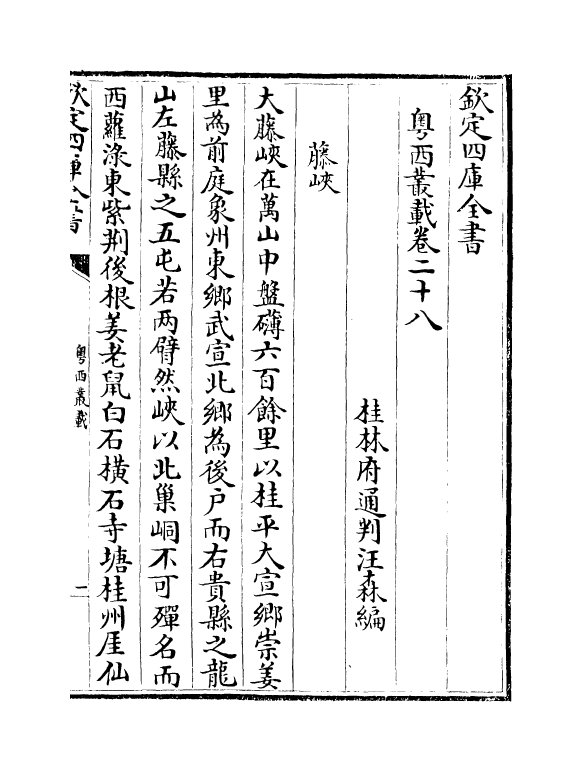 欽定四庫全書
粤西叢載卷二十八
桂林府通判汪森編
藤峽
大藤峽在萬山中盤礴六百餘里以桂平大宣鄉崇姜
里為前庭象州東鄉武宣北鄉為後户而右貴縣之龍
山左藤縣之五屯若两臂然峽以北巢峒不可殫名而
西蘿淥東紫荆後根姜老鼠白石横石寺塘桂州厓仙
欽定四庫全書
粤西叢載